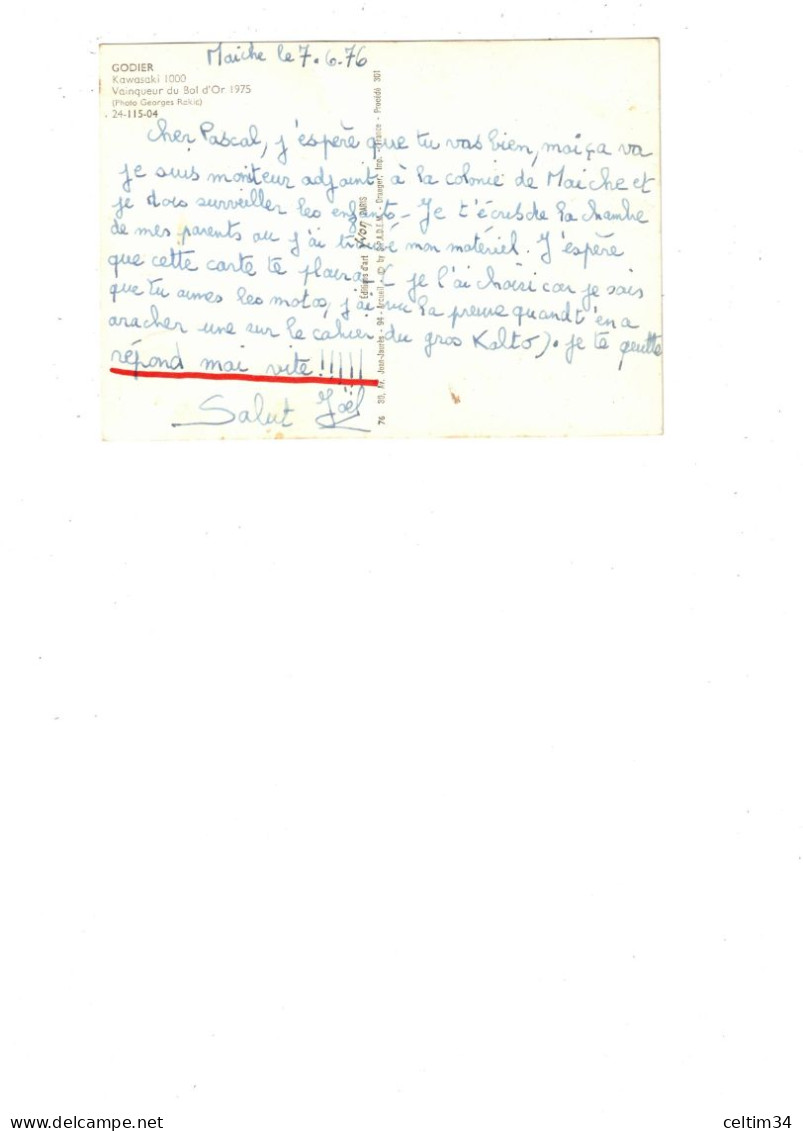 Maiche le 7.6.76
GODIER
Kawasaki 1000
Vainqueur du Bol d'Or 1975
(Photo Georges Rakic)
24-115-04
cher Pascal, j'espère que tu vas bien, moi ça va
je suis moniteur adjoint à la colonie de Maiche et
je dois surveiller les enfants - Je t'écris de la chambre
de mes parents ou j'ai trouvé mon matériel. J'espère
que cette carte te plaira (- je l'ai choisi car je sais
que tu aimes les motos, j'ai vu la preuve quand t'en a
aracher une sur le cahier du gros Kalto). je te quitte
répond moi vite !!!!!!
Salut Joël
Éditions d'art Yvon PARIS
76 39, Av. Jean-Jaurès - 94 - Arcueil - © by S.P.A.D.E.M. - Draeger, Imp. - France - Procédé 301
celtim34